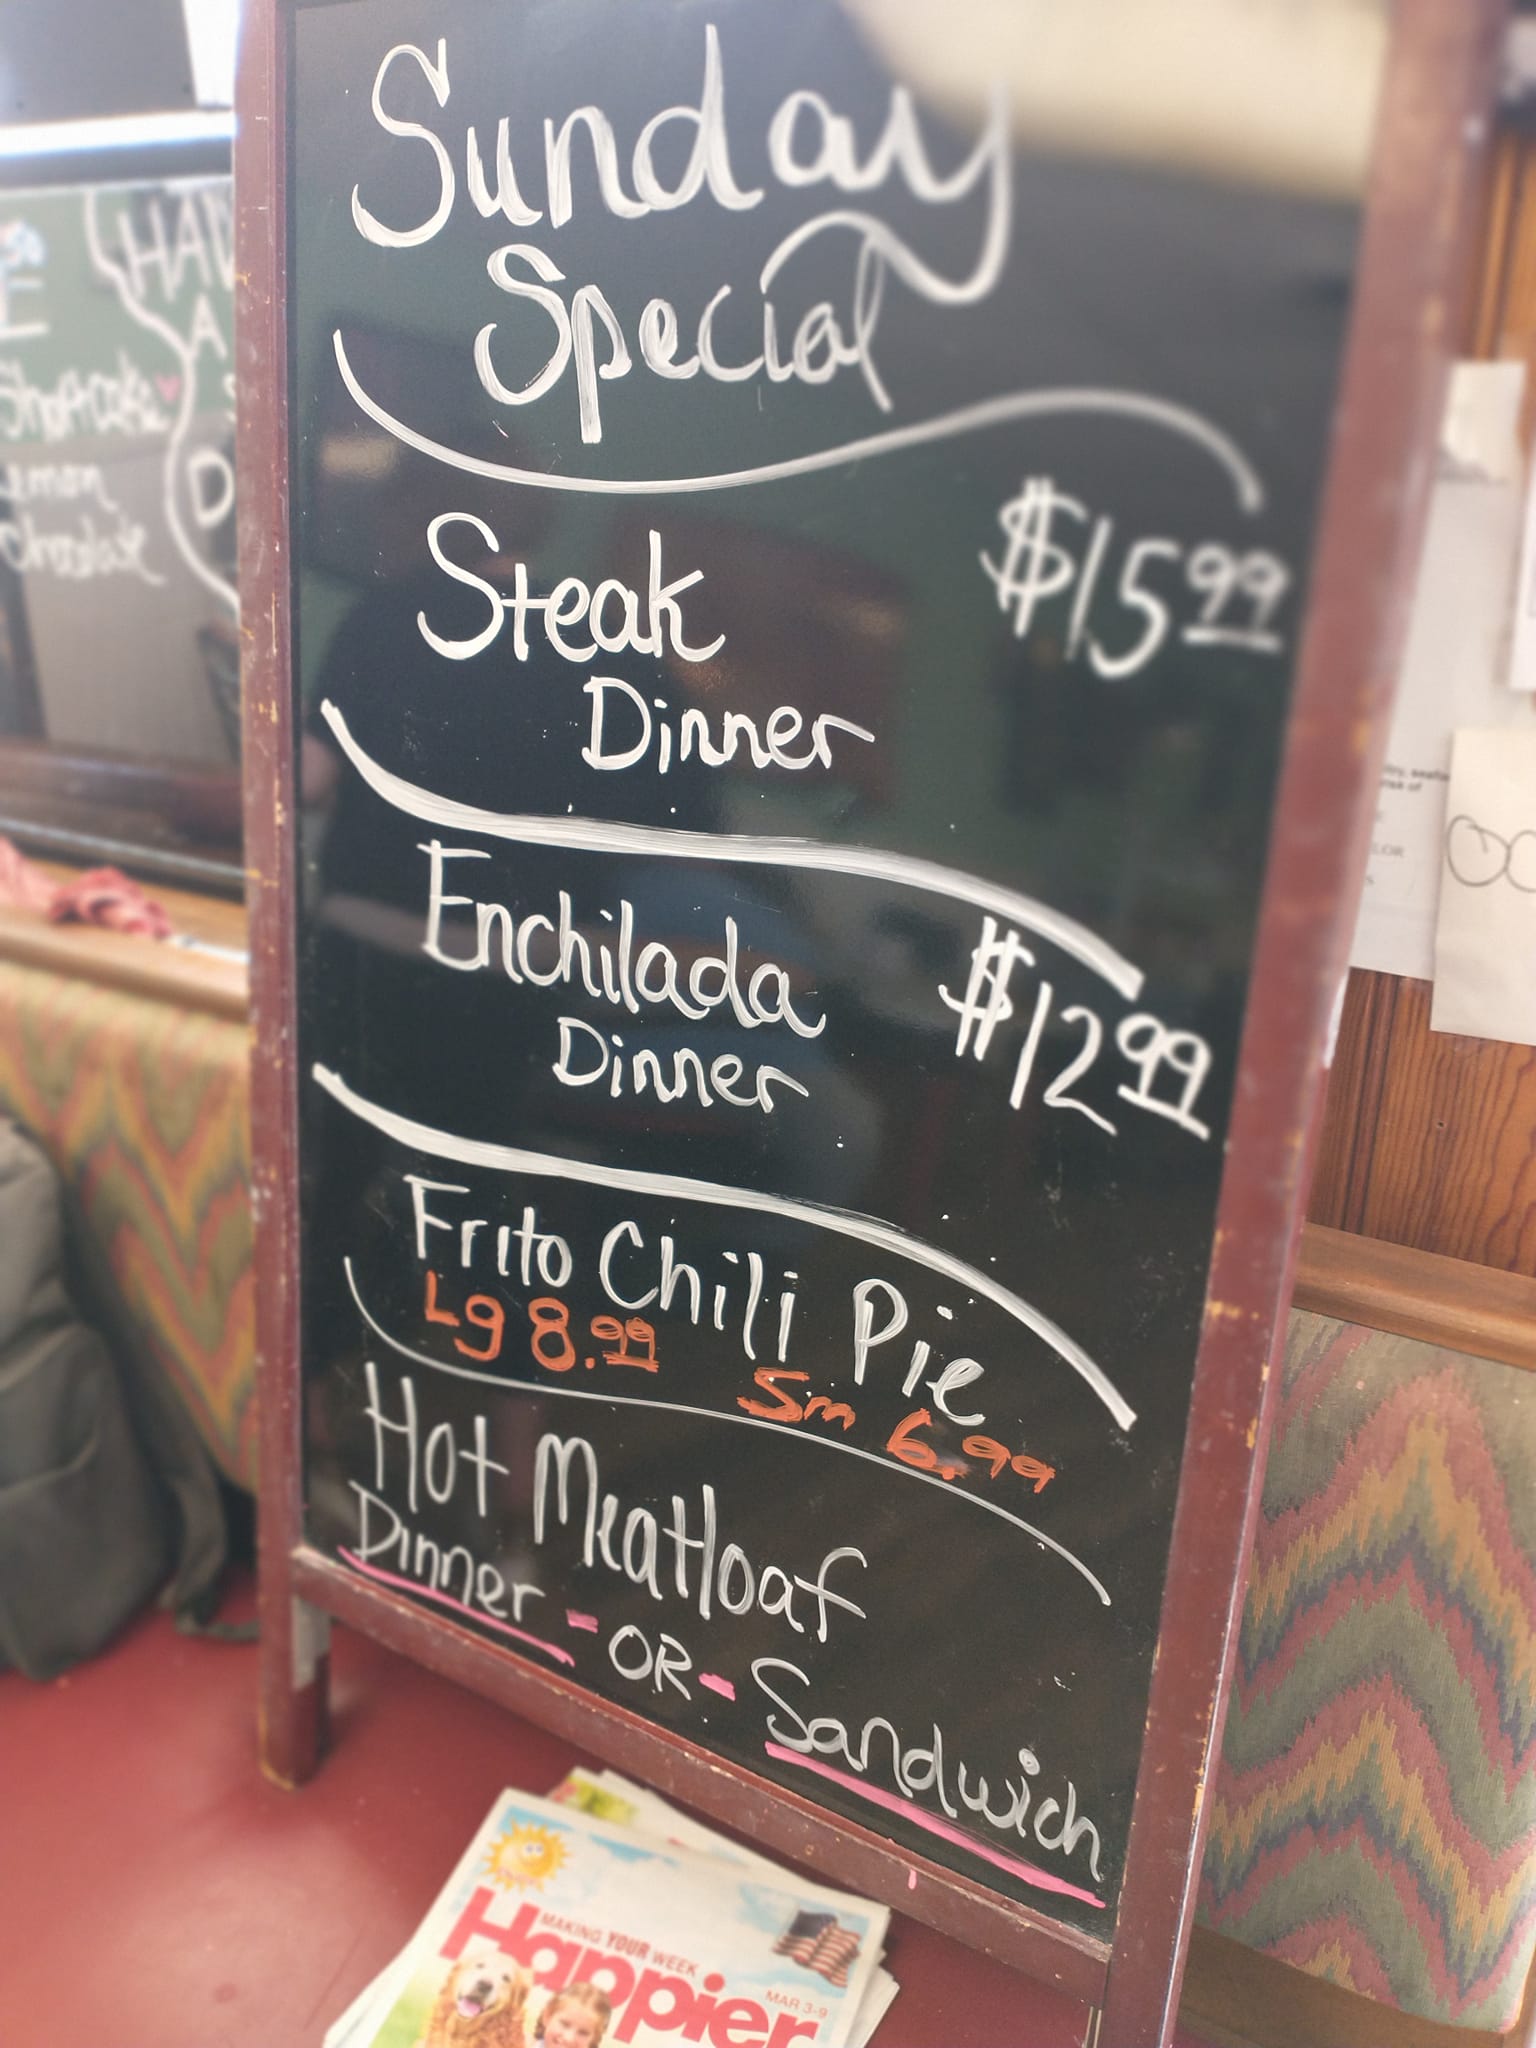 Sunday
Special
Steak
Dinner
$15 99
Enchilada
Dinner
$12 99
Frito Chili Pie
Lg 8.99
Sm 6.99
Hot Meatloaf
Dinner - OR - Sandwich
MAKING YOUR WEEK
Happier
MAR 3-9
HAV
A
D
Lemon
Chocolate